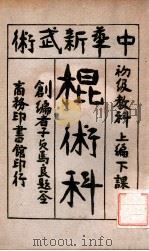 中華新武術
初級教科 上編下課
棍術科
創編者子貞馬良題
商務印書館印行